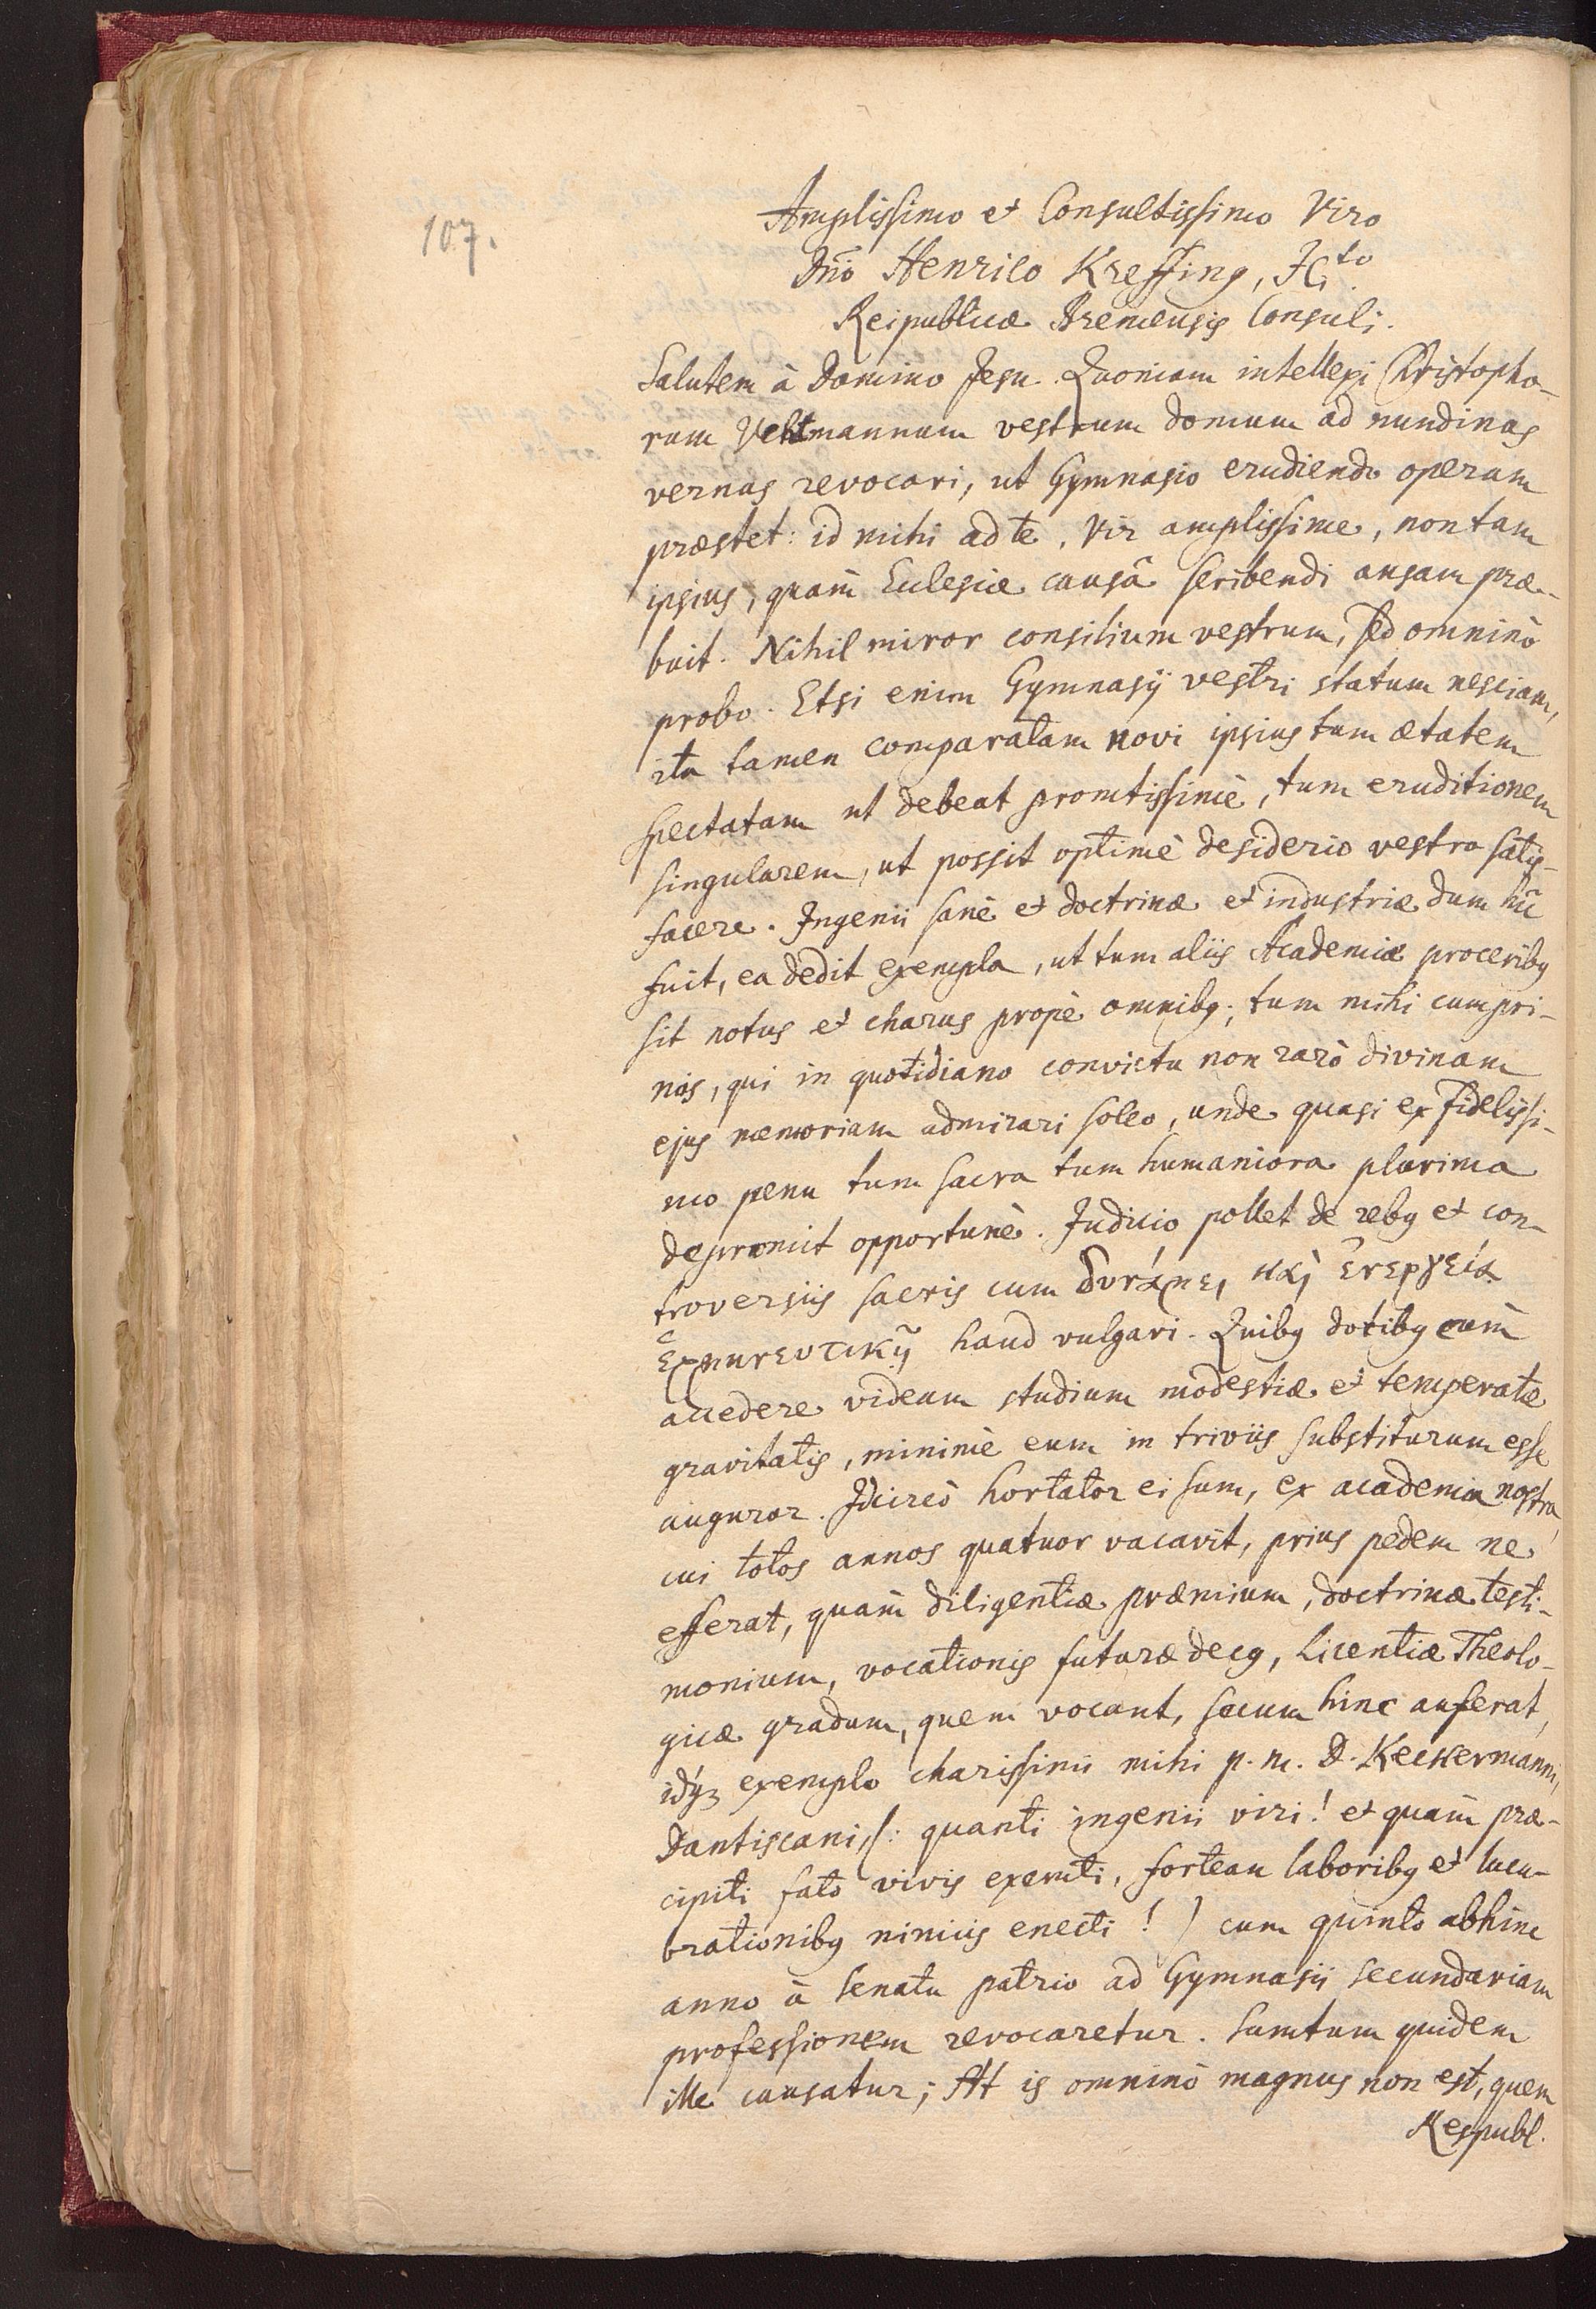 107.
Amplissimo et Consultissimo Viro
Dño Henrico Kreffing, JCto.
Reipublicæ Bremensis Consuli.
Salutem à Domino Jesu. Quoniam intellexi Christopho-
rum Veltmannum vestrum domum ad nundinas
vernas revocari, ut Gymnasio erudiendo operam
præstet: id mihi ad te, Vir amplissime, non tam
ipsius, quàm Ecclesiæ causâ scribendi ansam præ-
buit. Nihil miror consilium vestrum, sed omninò
probo. Etsi enim Gymnasij vestri statum nesciam,
ita tamen comparatam novi ipsius tum ætatem
spectatam ut debeat promtissimè, tum eruditionem
singularem, ut possit optimè desiderio vestro satis-
facere. Ingenii sanè et doctrinæ et industriæ dum hîc
fuit, ea dedit exempla, ut tum aliis Academiæ proceribꝫ
sit notus et charus propè omnibꝫ; tum mihi cumpri-
mis, qui in quotidiano convictu non rarò divinam
ejus memoriam admirari soleo, unde quasi ex fidelissi-
mo penu tum sacra tum humaniora plurima
depromit opportunè. Judicio pollet de rebꝫ et con-
troversiis sacris cum δυνάμει καὶ ἐνεργείᾳ
ἑρμηνευτικῇ haud vulgari. Quibꝫ dotibꝫ cùm
accedere videam studium modestiæ et temperatæ
gravitatis, minimè eum in triviis substiturum esse
auguror. Idcircò hortator ei sum, ex academia nostra,
cui totos annos quatuor vacavit, prius pedem ne
efferat, quàm diligentiæ præmium, doctrinæ testi-
monium, vocationis futuræ decꝫ, Licentiæ Theolo-
gicæ gradum, quem vocant, secum hinc auferat,
idqꝫ exemplo charissimi mihi p. m. D. Keckermanni,
Dantiscani, (: quanti ingenii viri! et quàm præ-
cipiti fato vivis exemti, fortean laboribꝫ et lucu-
brationibꝫ nimiis enecti! ) cum quinto abhinc
anno à Senatu patrio ad Gymnasii secundariam
professionem revocaretur. Sumtum quidem
ille causatur; At is omninò magnus non est, quem
Respubl.